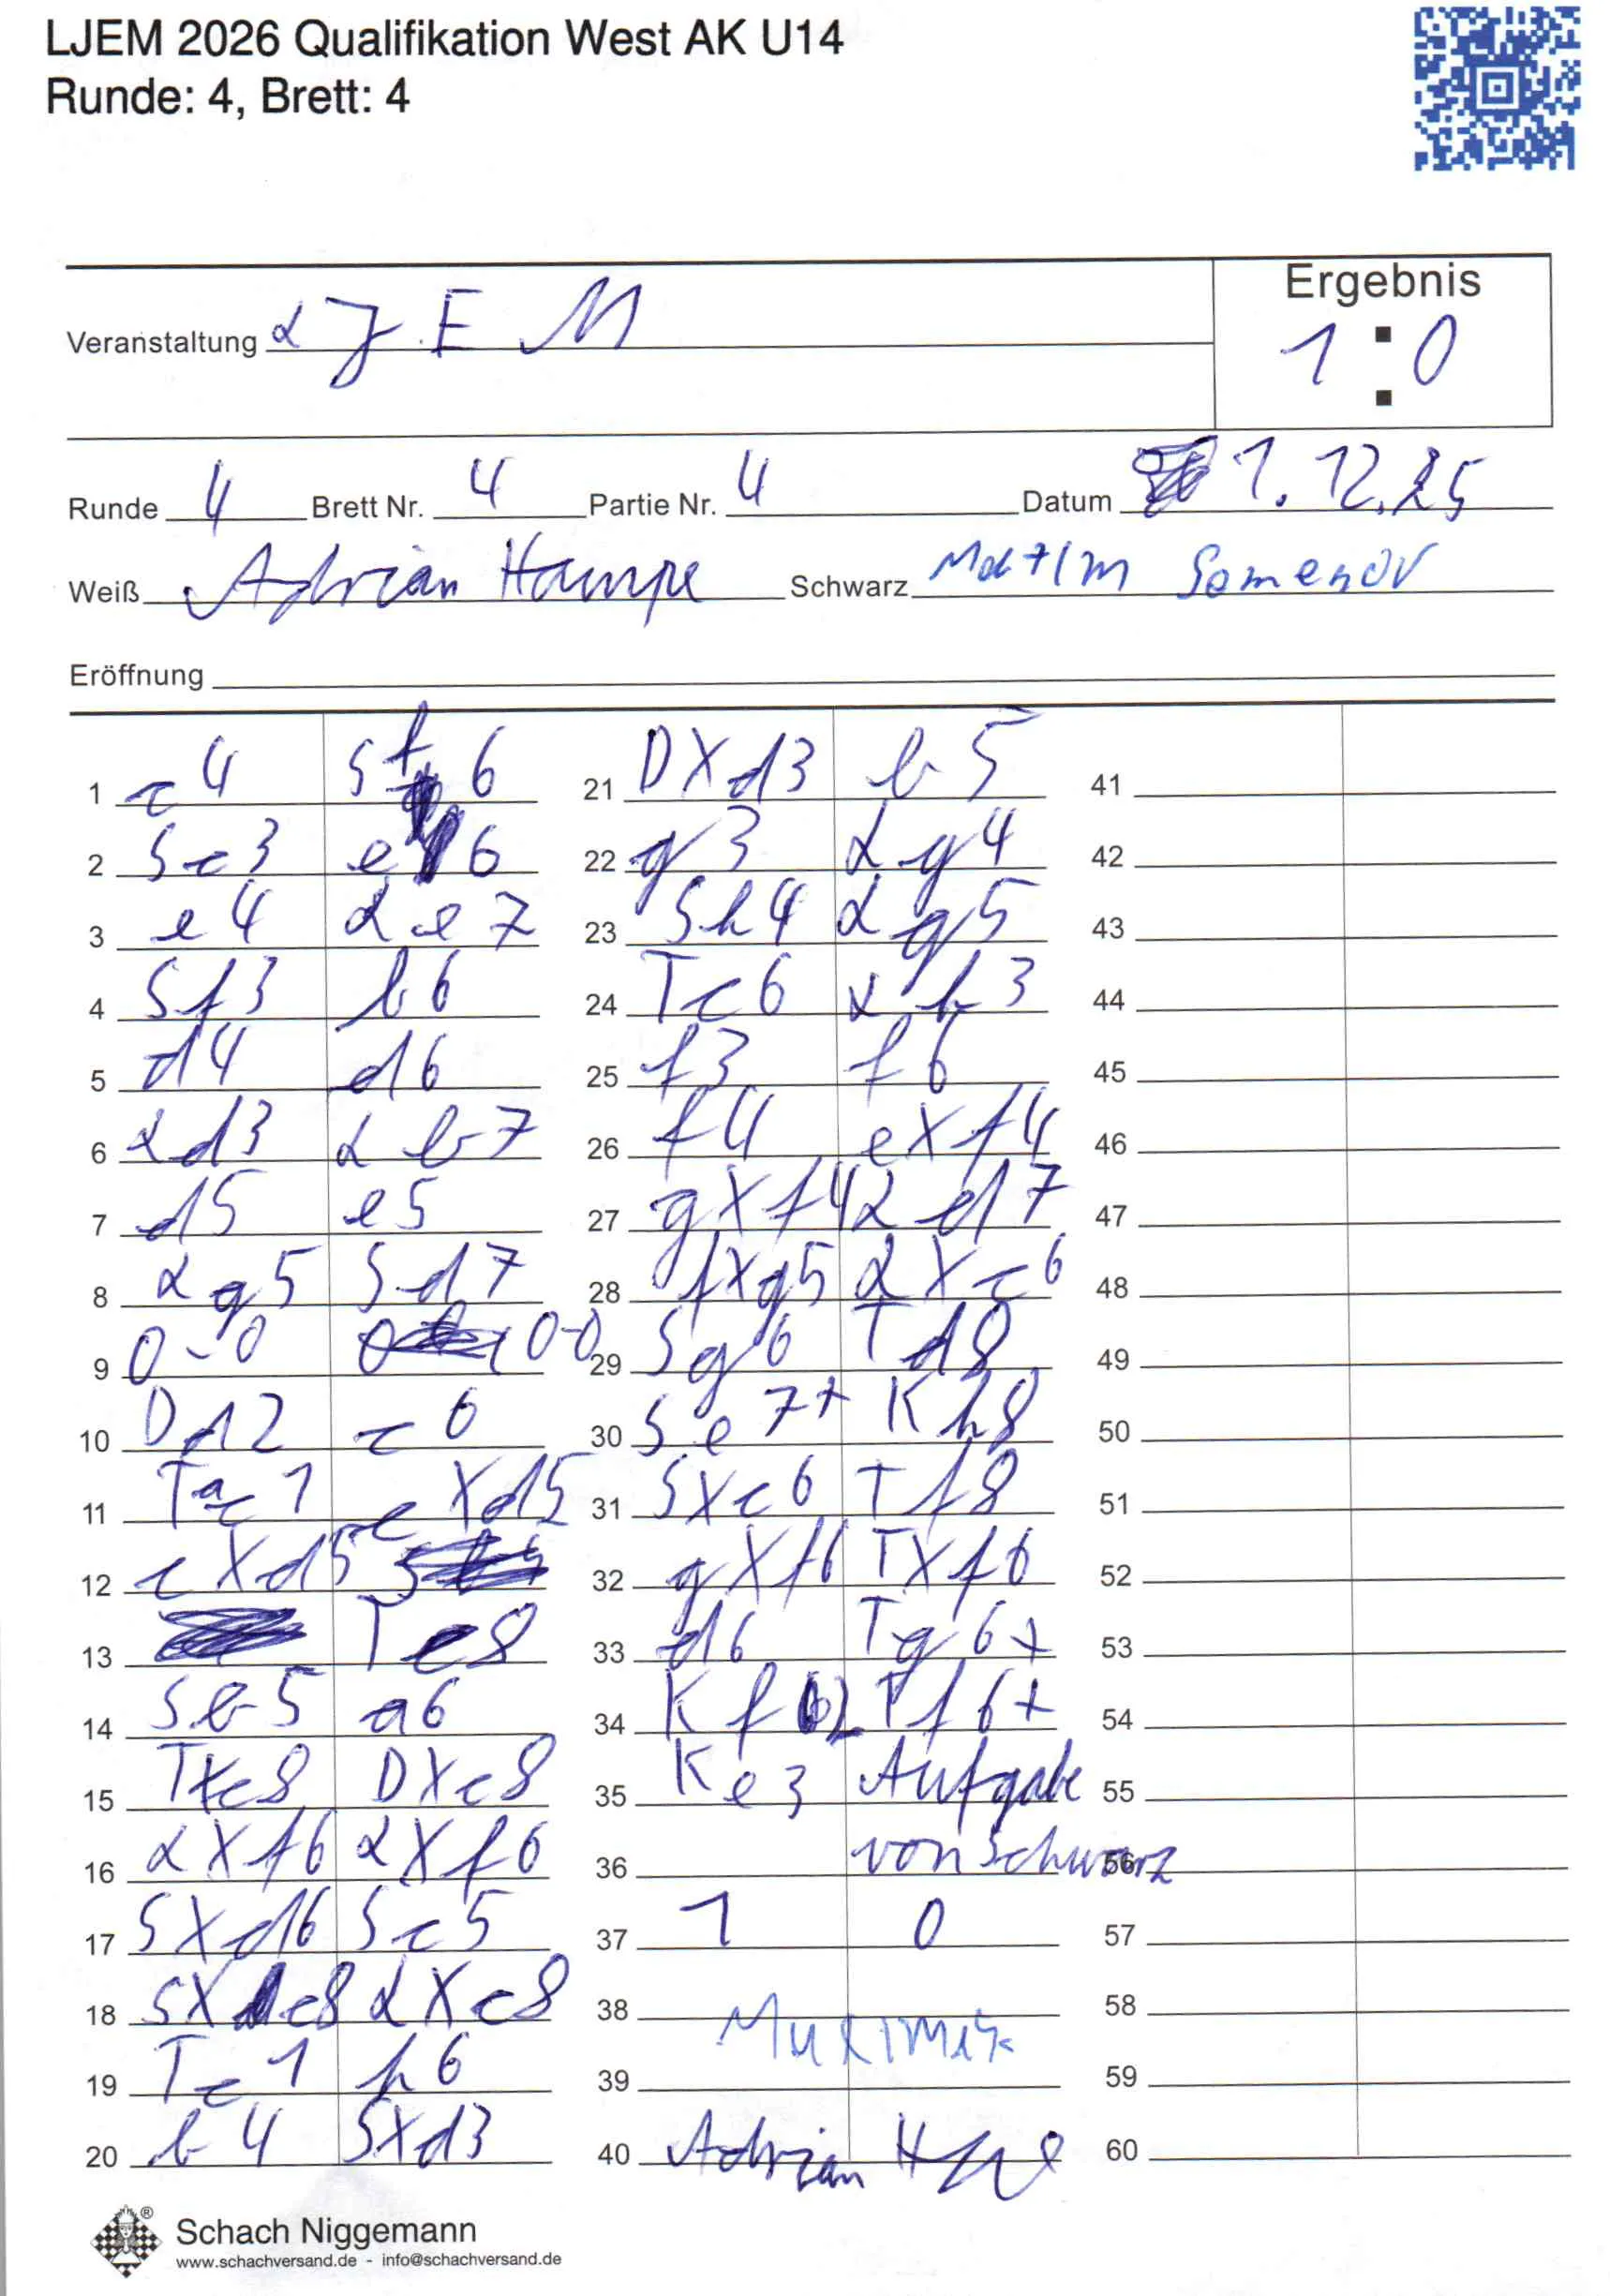 LJEM 2026 Qualifikation West AK U14
Runde: 4, Brett: 4
Veranstaltung LJEM
Ergebnis
1 : 0
Runde 4 Brett Nr. 4 Partie Nr. 4 Datum 1.12.25
Weiß Adrian Hampe Schwarz
Eröffnung
1 c4 Sf6 21 DXd3 b5 41
2 Sc3 e6 22 g3 Lg4 42
3 e4 Le7 23 Sh4 Lg5 43
4 Sf3 b6 24 Tc6 Lh3 44
5 d4 d6 25 f3 f6 45
6 Ld3 Lb7 26 f4 eXf4 46
7 d5 e5 27 gXf4 Ld7 47
8 Lg5 Sd7 28 fXg5 LXc6 48
9 0-0 0-0 29 Sg6 Td8 49
10 Dd2 c6 30 Se7+ Kh8 50
11 Tac1 cXd5 31 SXc6 Tf8 51
12 cXd5 32 gXf6 TXf6 52
13 Tc8 33 d6 Tg6+ 53
14 Sb5 a6 34 Kf2 Tf6+ 54
15 TXc8 DXc8 35 Ke3 Aufgabe 55
16 LXf6 LXf6 36 von Schwarz 56
17 SXd6 Sc5 37 1 0 57
18 SXc8 LXc8 38 58
19 Tc1 h6 39 59
20 b4 SXd3 40 Adrian 60
®
Schach Niggemann
www.schachversand.de - info@schachversand.de